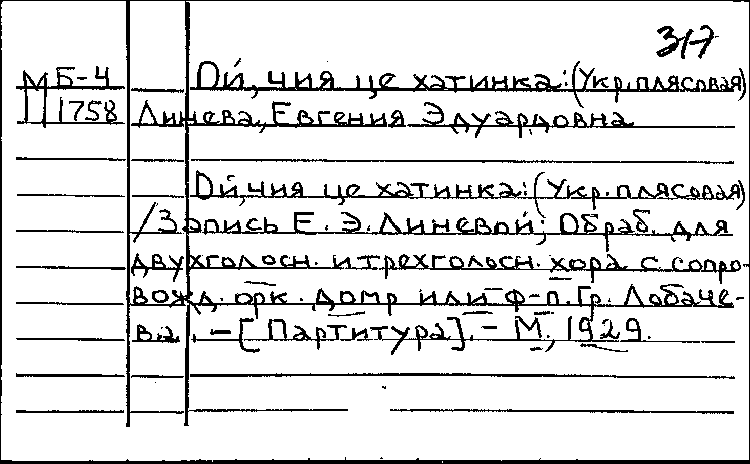 317
М Б-4 Ой, чия це хатинка: (Укр. плясовая)
1758 Линева, Евгения Эдуардовна
Ой, чия це хатинка: (Укр. плясовая)
/Запись Е. Э. Линевой; Обраб. для
двухголосн. и трехголосн. хора с сопро-
вожд. орк. домр или ф-п. Гр. Лобаче-
ва. - [Партитура]. - М., 1929.